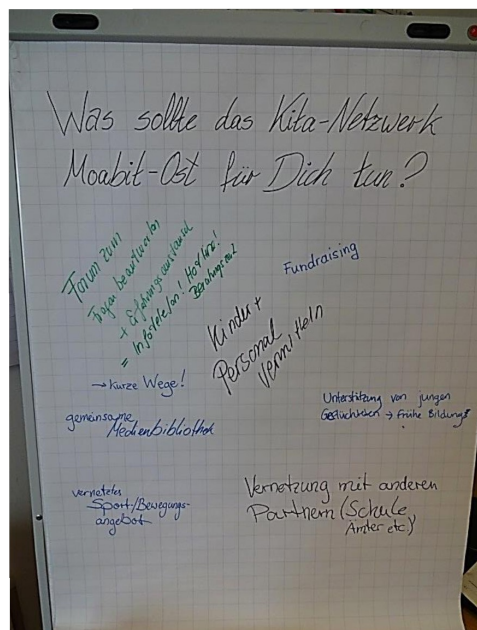 Was sollte das Kita-Netzwerk
Moabit-Ost für Dich tun?
Forum zum
Fragen beantworten
+ Erfahrungsaustausch
= Infotelefon! Hotline!
Fundraising
Kinder +
Personal
vermitteln
→ kurze Wege!
gemeinsame
Medienbibliothek
Unterstützung von jungen
Geflüchteten → frühe Bildung
vernetztes
Sport/Bewegungs-
angebot
Vernetzung mit anderen
Partnern (Schule,
Ämter etc)